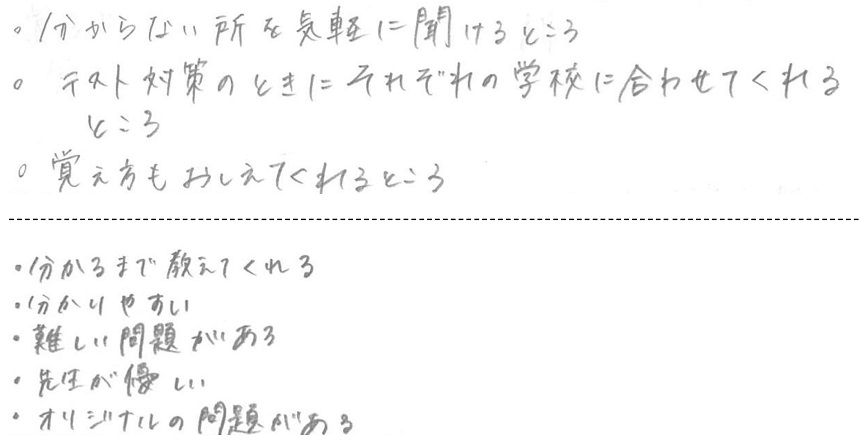 。分からない所を気軽に聞けるところ
。テスト対策のときにそれぞれの学校に合わせてくれる
ところ
。覚え方もおしえてくれるところ
・分かるまで教えてくれる
・分かりやすい
・難しい問題がある
・先生が優しい
・オリジナルの問題がある